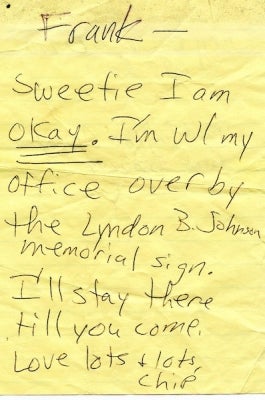 Frank —
Sweetie I am
okay. I'm w/ my
office over by
the Lyndon B. Johnson
memorial sign.
I'll stay there
till you come.
Love lots & lots,
Chip